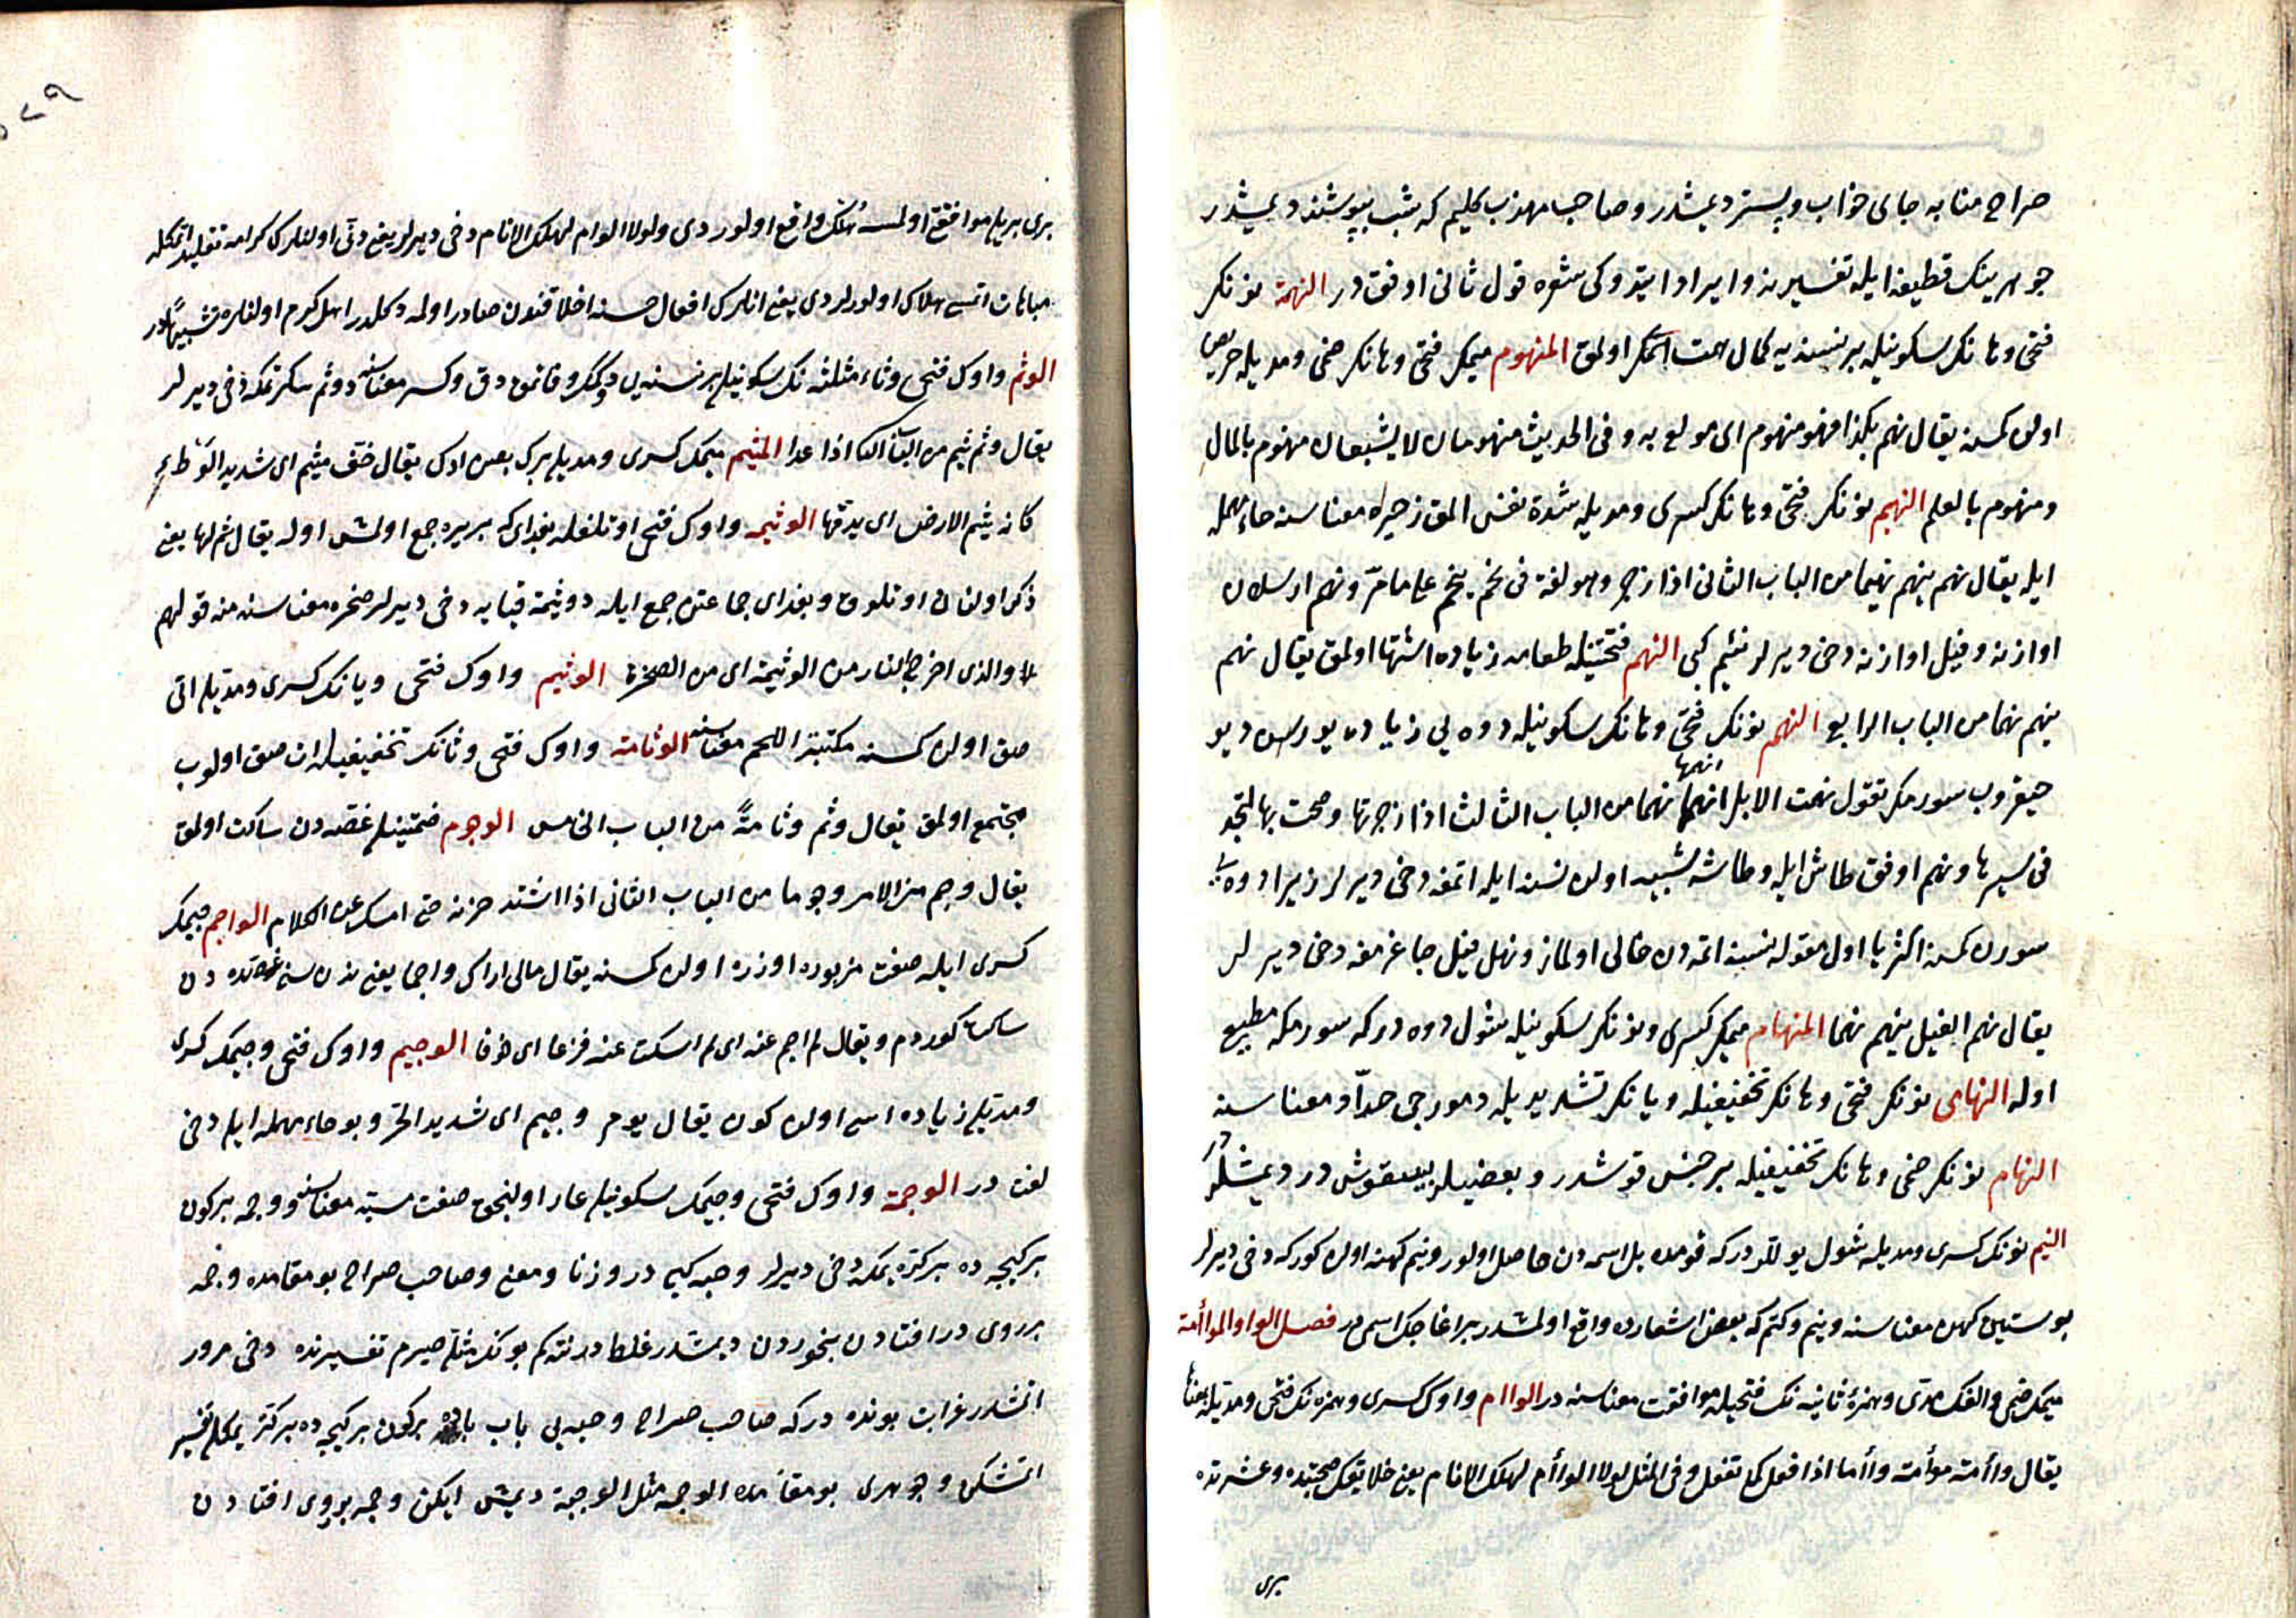 صراح منامه جای خواب و بستر دیمشدر و صاحب مهذب کلیم که شب بپوشند دیمشدر
جوهرینك قطیفه ایله تفسیرنه و ایراد ایتدوكی شعره قول ثانی اوفقدر النهمة نونك
فتحی و هانك سكونیله بر نسنه یه كمال همت اتمك اولمق المنهوم میمك فتحی و هانك ضمی و مدیله حریص
اولان كمسنه یقال نهم بكذا فهو منهوم ای مولع به و فی الحدیث منهومان لا یشبعان منهوم بالمال
و منهوم بالعلم النهیم نونك فتحی و هانك كسری و مدیله شدة نفس المق زحیر معناسنه حاء مهمله
ایله یقال نهم ینهم نهیما من الباب الثانی اذا زجر و هو لغة فی نحم ینحم علی ما مرّ و نهم ارسلان
اوازنه و فیل اوازنه دخی دیرلر نئیم كبی النهم فتحتینله طعامه زیاده اشتها اولمق یقال نهم
ینهم نهما من الباب الرابع النهم نونك فتحی و هانك سكونیله دوه یی زیاده یورسون دیو
حیقروب سورمك تقول نهمت الابل انهمها نهما من الباب الثالث اذا زجرتها و صحت بها لتجد
فی سیرها و نهم اوفق طاش ایله و طاشه شبیه اولان نسنه ایله اتمغه دخی دیرلر زیرا دوه یی
سورن كمسنه اكثریا اول مقوله نسنه اتمه دن خالی اولماز و نهل فیل چاغرمغه دخی دیرلر
یقال نهم الفیل ینهم نهما المنهام میمك كسری و نونك سكونیله شول دوه دركه سورمكه مطیع
اوله النهامی نونك فتحی و هانك تخفیفیله و یانك تشدیدیله دمورجی حدّاد معناسنه
النهام نونك ضمی و هانك تخفیفیله بر جنس قوشدر و بعضیلر بیقوش در دیمشلر
النیم نونك كسری و مدیله شول یوللردركه قومده یل اسمه دن حاصل اولور و نیم كهنه اولان كوركه دخی دیرلر
پوستین كهن معناسنه و نیم و كتم كه بعض اشعارده واقع اولمشدر بر اغاجك اسمیدر فصل الواو المواأمة
میمك ضمی و الفك مدّی و همزۀ ثانیه نك فتحیله موافقت معناسنه در الواام واوك كسری و همزه نك فتحی و مدیله بو معنایه
یقال واأمته موأمة و وأاما اذا فعل كما تفعل و فی المثل لولا الوأام لهلك الانام یعنی خلایقك صحبتده و عشرتده
بری
بری بریله موافقتی اولمسه هلاك واقع اولوردی و لولا الوام لهلك الانام دخی دیرلر یعنی دنی اولنلرك كرامه تقلید اتمكله
مباهات اتمسه هلاك اولورلردی یعنی انلرك افعال حسنه اخلاقندن صادر اوله دكلدر اهل كرم اولنلره تشبیهادر
الوثم واوك فتحی و ثاء مثلثه نك سكونیله بر نسنه یی دوكمك و قانمق دق و كسر معناسنه و وثم سكرتمكه دخی دیرلر
یقال وثم یثم من الباب الثانی اذا عدا المیثم میمك كسری و مدیله برك بصن ادك یقال خف میثم ای شدید الوطء
كانه یثم الارض ای یدقها الوثیمه واوك فتحی اوتلغله بغدای كه بر یره جمع اولمش اوله یقال ثم لها یعنی
ذكر اولنان اوتلوق و بغدای جماعتن جمع ایله و وثیمة قیایه دخی دیرلر صخره معناسنه منه قولهم
لا والذی اخرج النار من الوثیمة ای من الصخرة الوثیم واوك فتحی و یانك كسری و مدیله اتی
صق اولان كمسنه مكتنز اللحم معناسنه الوثامة واوك فتحی و ثانك تخفیفیله ات صق اولوب
مجتمع اولمق یقال وثم وثامةً من الباب الخامس الوجوم ضمتینله غصه دن ساكت اولمق
یقال وجم من الامر وجوما من الباب الثانی اذا اشتد حزنه حتی امسك عن الكلام الواجم جیمك
كسری ایله صفت مزبوره اوزره اولان كمسنه یقال مالی اراك واجما یعنی بن سنی غصه دن
ساكت كوردم و یقال لم اجم عنه ای لم اسكت عنه فزعا ای خوفا الوجیم واوك فتحی و جیمك كسری
و مدیله زیاده اسی اولان كون یقال یوم وجیم ای شدید الحر و بو حاء مهمله ایله دخی
لغت در الوجمة واوك فتحی و جیمك سكونیله عار اولنجق صفت مسبّه معناسنه و وجمه بر كون
بر كیجه ده بر كره یمكه دخی دیرلر وجبه كبی در وزنا و معنی و صاحب صراح بو مقامده وجمه
بر روی در افتادن بخوردن دیمشدر غلطدر نته كم بونك مثلی صیرم تفسیرنده دخی مرور
اتمشدر غرابت بونده دركه صاحب صراح وجبه یی باب باده بر كون بر كیجه ده بر كره یمكله تفسیر
اتمشكن و جوهری بو مقامده الوجمه مثل الوجبة دیمش ایكن وجمه بروی افتادن